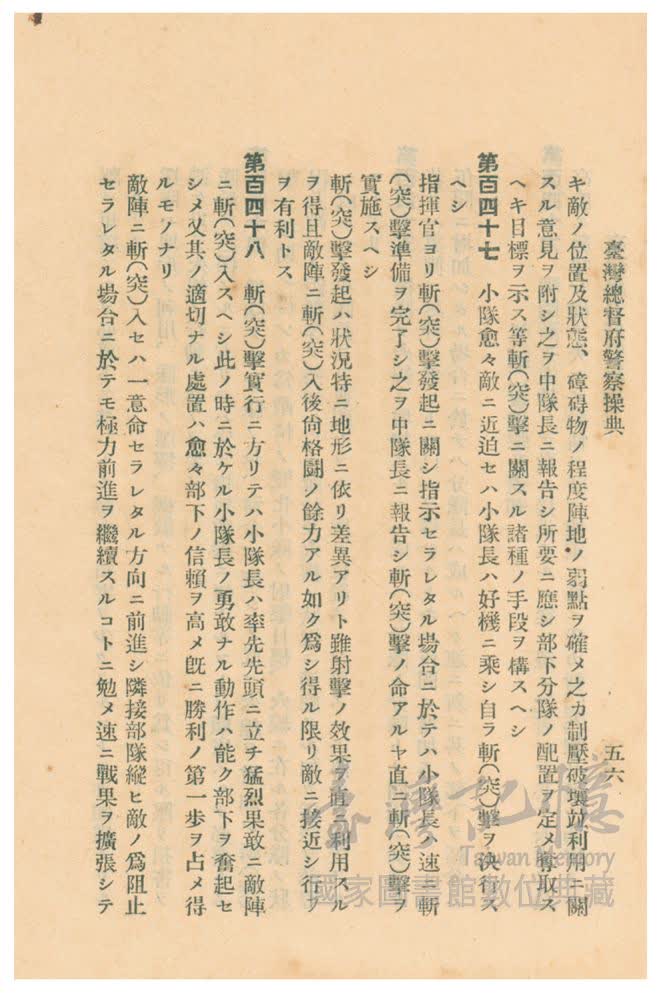 臺灣總督府警察操典
五六
キ敵ノ位置及狀態、障碍物ノ程度陣地ノ弱點ヲ確メ之カ制壓破壞竝利用ニ關
スル意見ヲ附シ之ヲ中隊長ニ報告シ所要ニ應シ部下分隊ノ配置ヲ定メ奪取ス
ヘキ目標ヲ示ス等斬(突)擊ニ關スル諸種ノ手段ヲ構スヘシ
第百四十七 小隊愈々敵ニ近迫セハ小隊長ハ好機ニ乘シ自ラ斬(突)擊ヲ決行ス
ヘシ
指揮官ヨリ斬(突)擊發起ニ關シ指示セラレタル場合ニ於テハ小隊長ハ速ニ斬
(突)擊準備ヲ完了シ之ヲ中隊長ニ報告シ斬(突)擊ノ命アルヤ直ニ斬(突)擊ヲ
實施スヘシ
斬(突)擊發起ハ狀況特ニ地形ニ依リ差異アリト雖射擊ノ效果ヲ直ニ利用スル
ヲ得且敵陣ニ斬(突)入後尙格鬪ノ餘力アル如ク爲シ得ル限リ敵ニ接近シ行フ
ヲ有利トス
第百四十八 斬(突)擊實行ニ方リテハ小隊長ハ率先先頭ニ立チ猛烈果敢ニ敵陣
ニ斬(突)入スヘシ此ノ時ニ於ケル小隊長ノ勇敢ナル動作ハ能ク部下ヲ奮起セ
シメ又其ノ適切ナル處置ハ愈々部下ノ信賴ヲ高メ旣ニ勝利ノ第一步ヲ占メ得
ルモノナリ
敵陣ニ斬(突)入セハ一意命セラレタル方向ニ前進シ隣接部隊縱ヒ敵ノ爲阻止
セラレタル場合ニ於テモ極力前進ヲ繼續スルコトニ勉メ速ニ戰果ヲ擴張シテ
臺灣記憶
Taiwan Memory
國家圖書館數位典藏